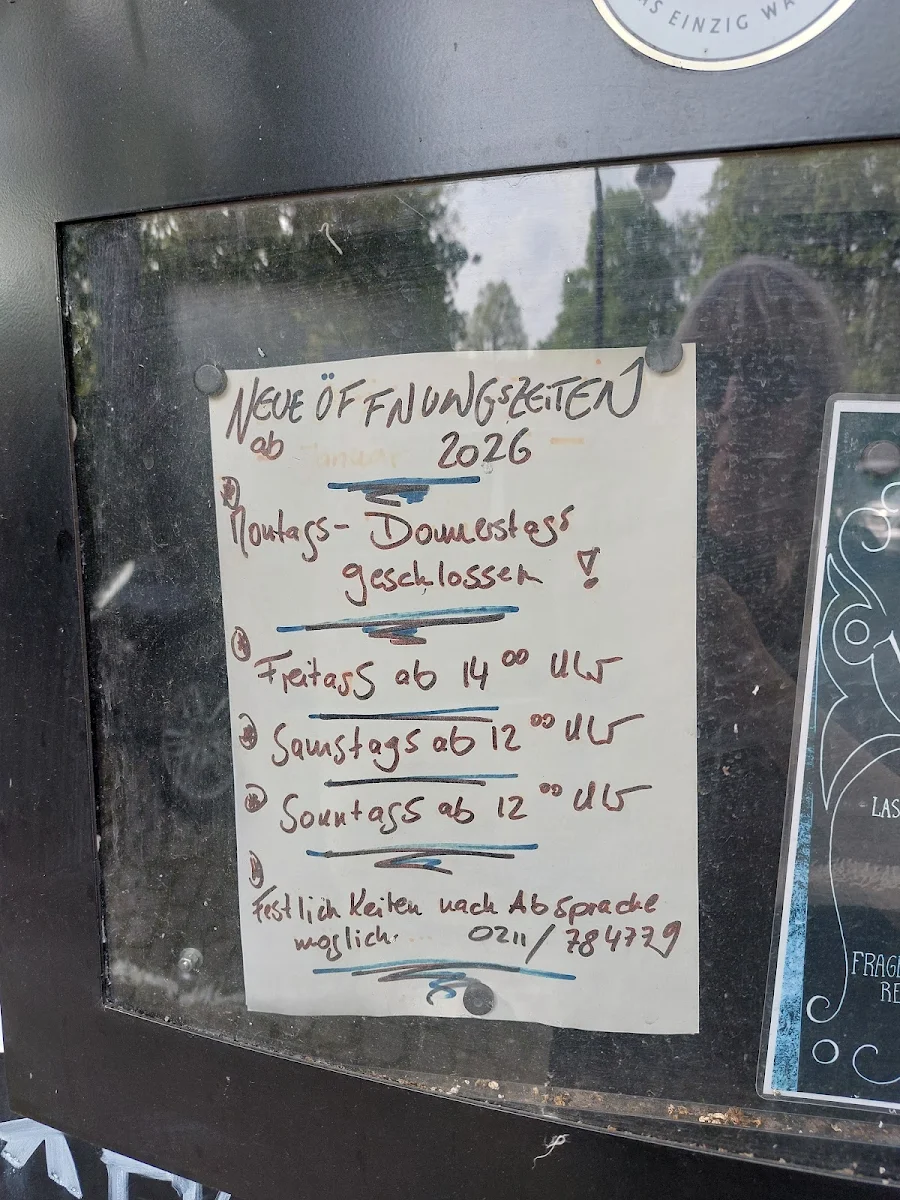 AS EINZIG WA
NEUE ÖFFNUNGSZEITEN
ab Januar 2026
Montags- Donnerstags
geschlossen !
Freitags ab 14 00 Uhr
Samstags ab 12 00 Uhr
Sonntags ab 12 00 Uhr
Festlichkeiten nach Absprache
möglich. 0211/784779
LAS
FRAGE
RE